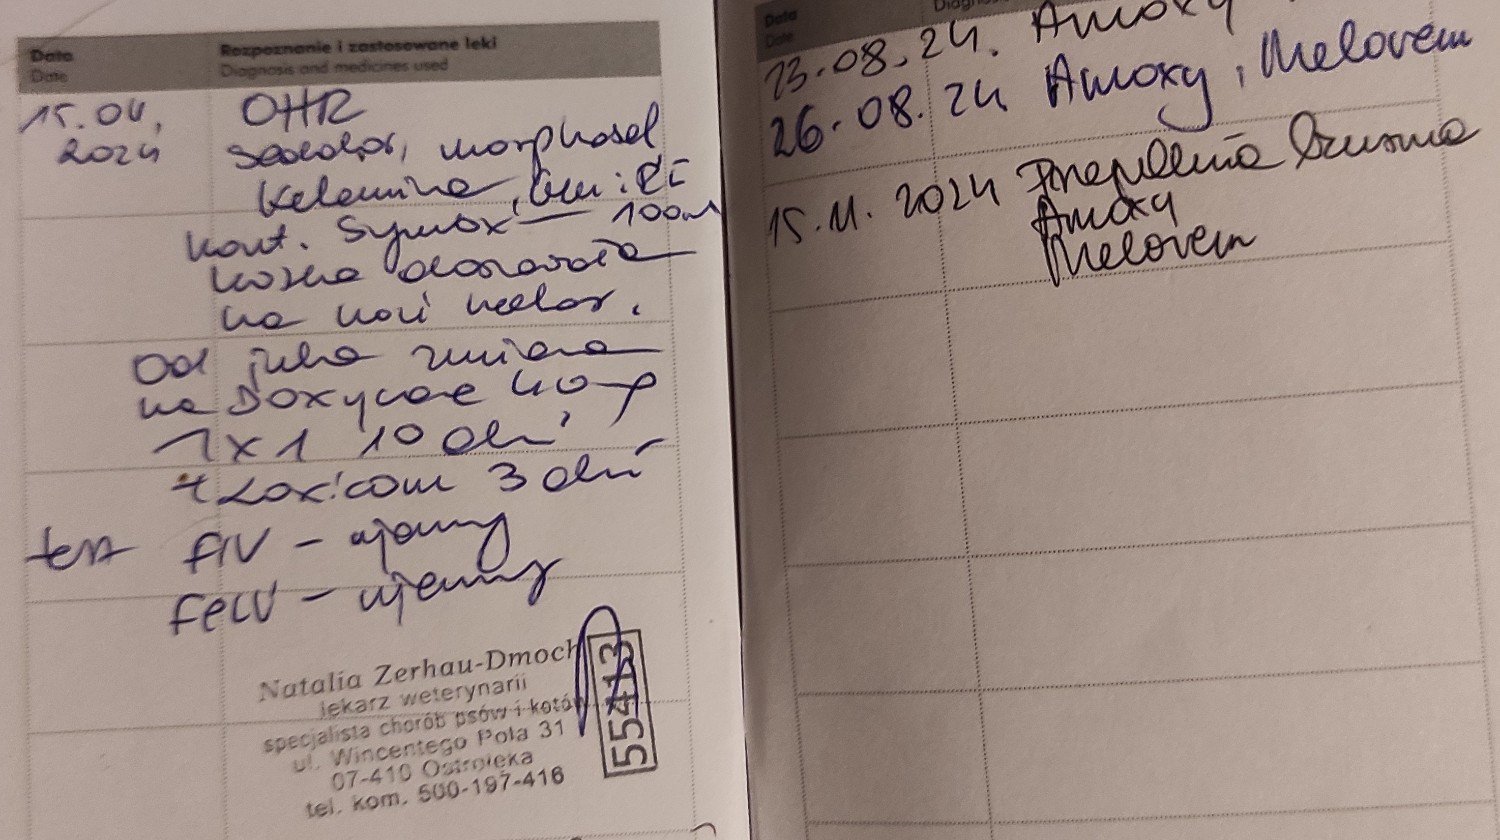 Data
Date
Rozpoznanie i zastosowane leki
Diagnosis and medicines used
15.04.
2024
OHR
sedator, morphasol
Ketamina,
kont. Symox — 100
na
Od jutra zmiana
na Doxycare 40
1x1 10 dni
+ Loxicom 3 dni
test FIV - ujemny
FeLV - ujemny
Natalia Zerhau-Dmoch
lekarz weterynarii
specjalista chorób psów i kotów
ul. Wincentego Pola 31
07-410 Ostrołęka
tel. kom. 500-197-416
55413
Data
Date
23.08.24. Amoxy
26.08.24 Amoxy, Melovem
15.11.2024
Amoxy
Melovem